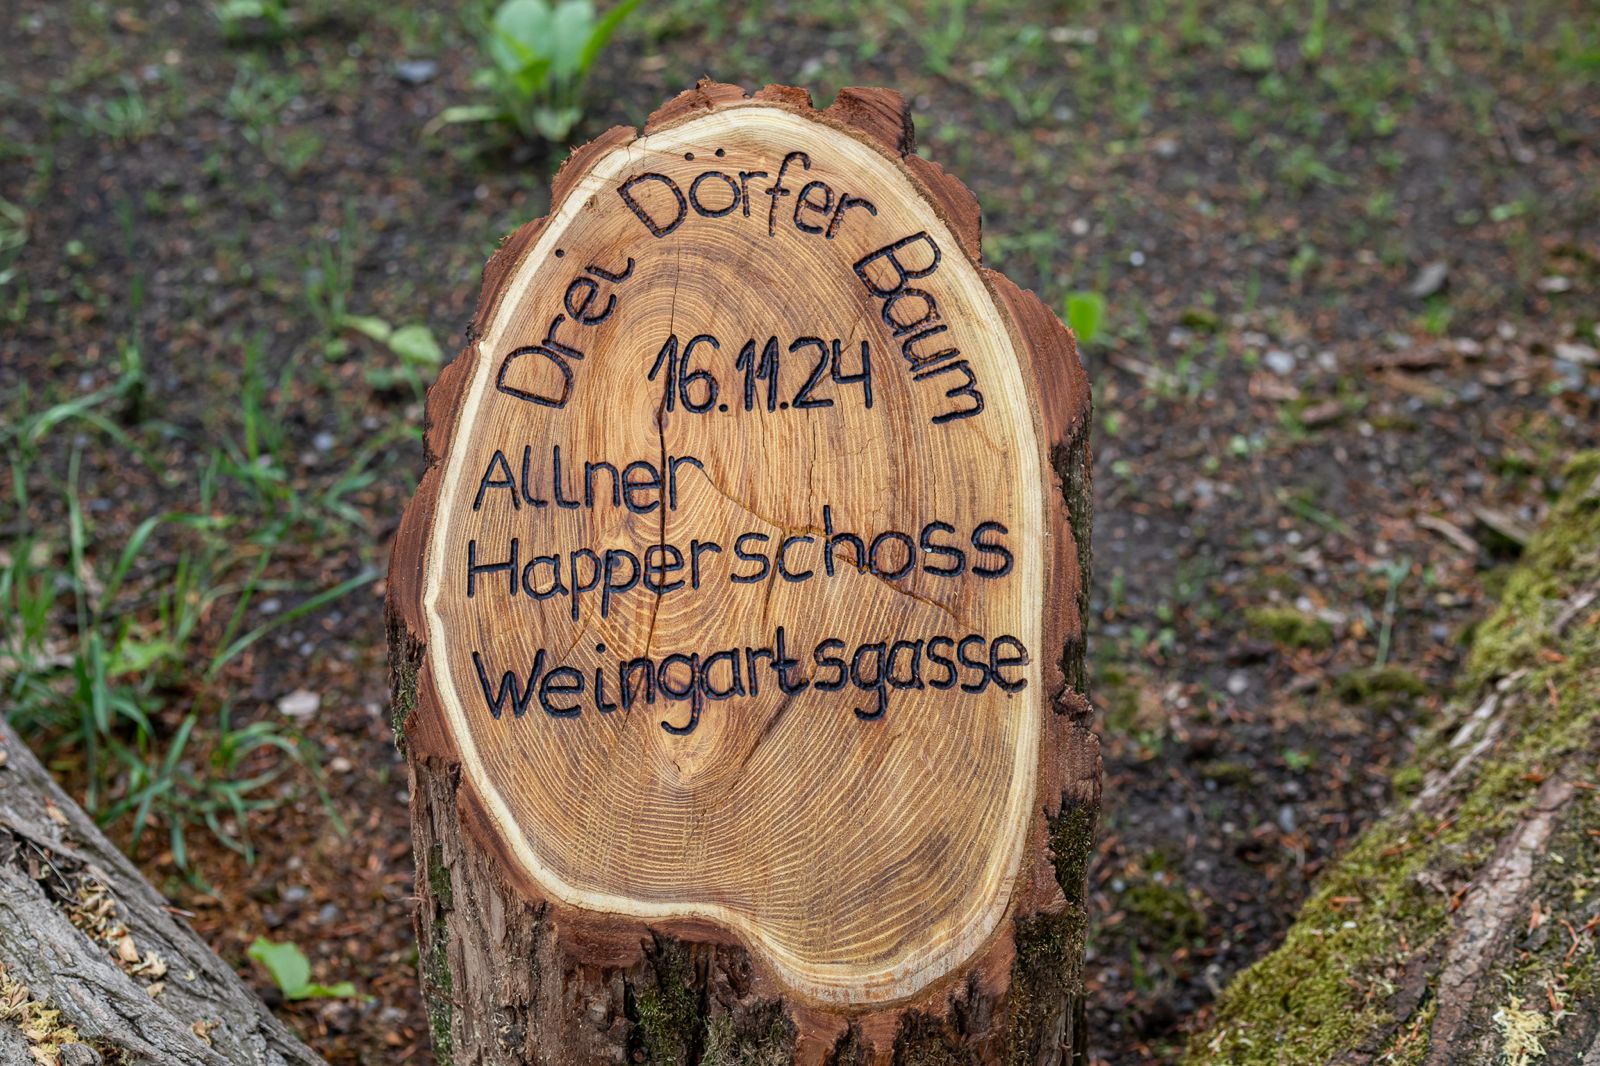 Drei Dörfer Baum
16.11.24
Allner
Happerschoss
Weingartsgasse